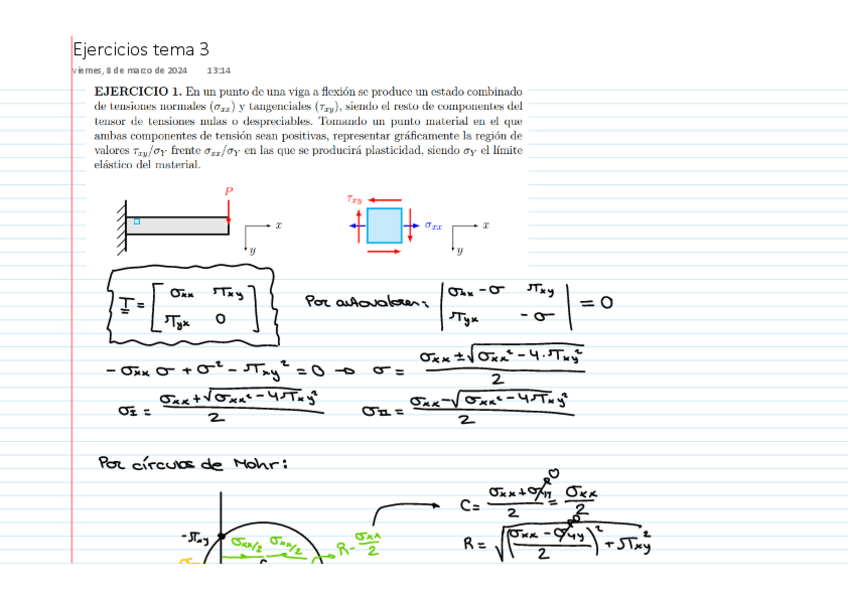 Ejercicios tema 3
viernes, 8 de marzo de 2024 13:14
EJERCICIO 1. En un punto de una viga a flexión se produce un estado combinado
de tensiones normales (σxx) y tangenciales (τxy), siendo el resto de componentes del
tensor de tensiones nulas o despreciables. Tomando un punto material en el que
ambas componentes de tensión sean positivas, representar gráficamente la región de
valores τxy/σY frente σxx/σY en las que se producirá plasticidad, siendo σY el límite
elástico del material.
P
x
y
τxy
σxx
x
y
T = [σxx τxy; τyx 0]
Por autovalores: |σxx - σ τxy; τyx -σ| = 0
-σxx σ + σ² - τxy² = 0 → σ = (σxx ± √(σxx² - 4·τxy²)) / 2
σI = (σxx + √(σxx² - 4τxy²)) / 2 σII = (σxx - √(σxx² - 4τxy²)) / 2
Por círculos de Mohr:
C = (σxx + σyy⁰) / 2 = σxx / 2
-τxy
σxx/2 σxx/2
R - σxx/2
R = √(((σxx - σyy⁰) / 2)² + τxy²)